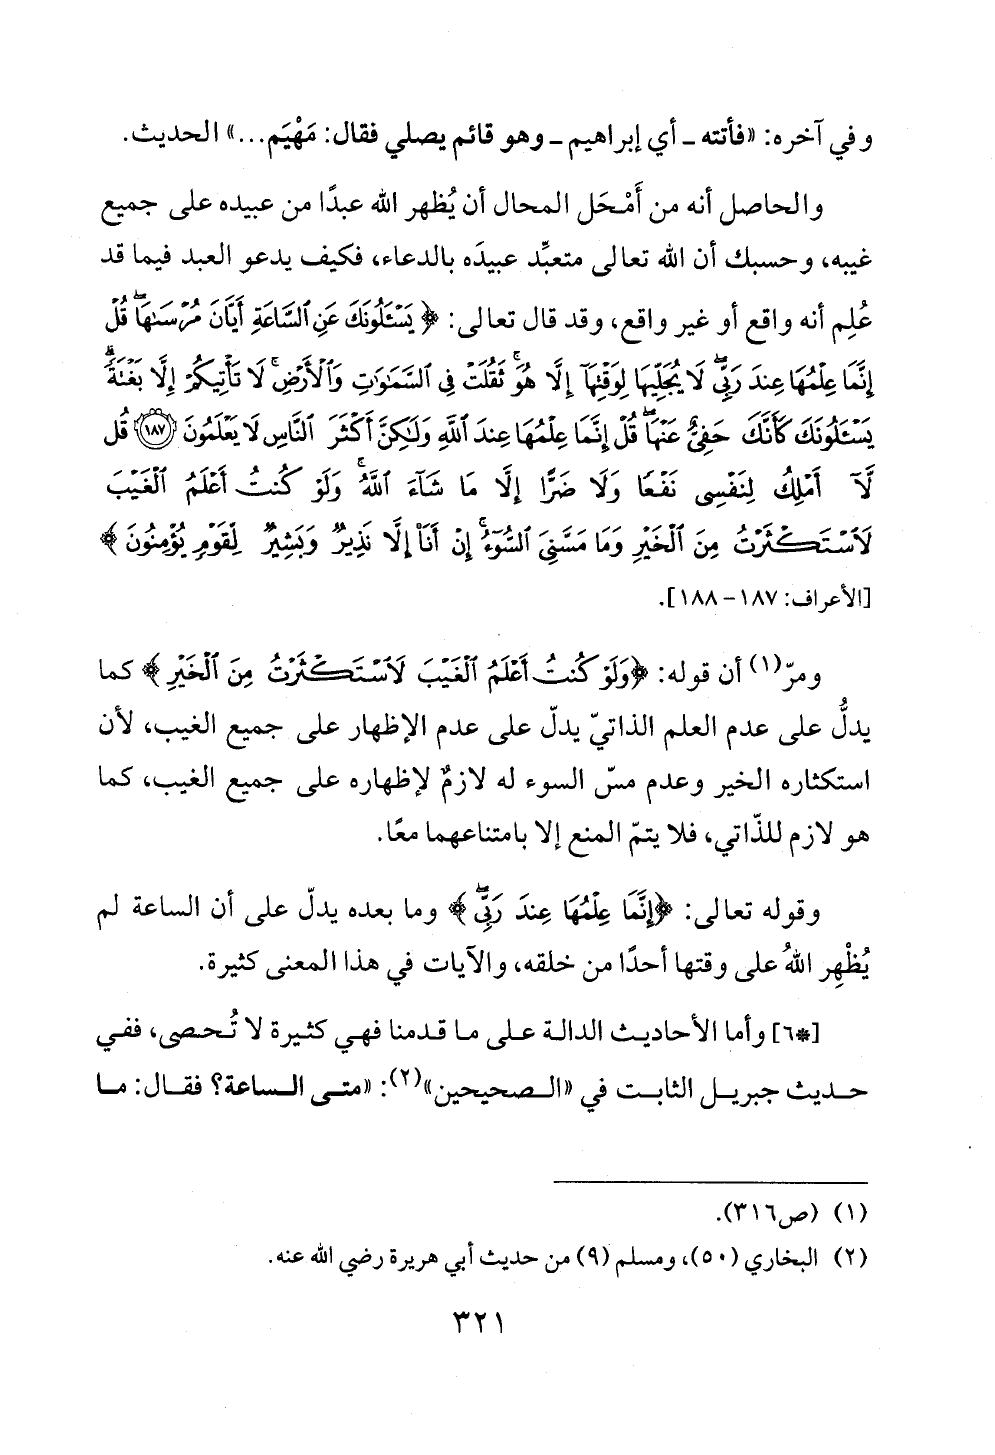 وفي آخره: «فأتته ـ أي إبراهيم ـ وهو قائم يصلي فقال: مَهْيَم...» الحديث.
والحاصل أنه من أَمْحَل المحال أن يُظهر الله عبدًا من عبيده على جميع
غيبه، وحسبك أن الله تعالى متعبِّد عبيدَه بالدعاء، فكيف يدعو العبد فيما قد
عُلِم أنه واقع أو غير واقع، وقد قال تعالى: ﴿يَسْـَٔلُونَكَ عَنِ ٱلسَّاعَةِ أَيَّانَ مُرْسَىٰهَا ۖ قُلْ
إِنَّمَا عِلْمُهَا عِندَ رَبِّى ۖ لَا يُجَلِّيهَا لِوَقْتِهَآ إِلَّا هُوَ ۚ ثَقُلَتْ فِى ٱلسَّمَٰوَٰتِ وَٱلْأَرْضِ ۚ لَا تَأْتِيكُمْ إِلَّا بَغْتَةً ۗ
يَسْـَٔلُونَكَ كَأَنَّكَ حَفِىٌّ عَنْهَا ۖ قُلْ إِنَّمَا عِلْمُهَا عِندَ ٱللَّهِ وَلَٰكِنَّ أَكْثَرَ ٱلنَّاسِ لَا يَعْلَمُونَ ﴿١٨٧﴾ قُل
لَّآ أَمْلِكُ لِنَفْسِى نَفْعًا وَلَا ضَرًّا إِلَّا مَا شَآءَ ٱللَّهُ ۚ وَلَوْ كُنتُ أَعْلَمُ ٱلْغَيْبَ
لَٱسْتَكْثَرْتُ مِنَ ٱلْخَيْرِ وَمَا مَسَّنِىَ ٱلسُّوٓءُ ۚ إِنْ أَنَا۠ إِلَّا نَذِيرٌ وَبَشِيرٌ لِّقَوْمٍ يُؤْمِنُونَ﴾
[الأعراف: ١٨٧ - ١٨٨].
ومرّ(١) أن قوله: ﴿وَلَوْ كُنتُ أَعْلَمُ ٱلْغَيْبَ لَٱسْتَكْثَرْتُ مِنَ ٱلْخَيْرِ﴾ كما
يدلُّ على عدم العلم الذاتيّ يدلّ على عدم الإظهار على جميع الغيب، لأن
استكثاره الخير وعدم مسّ السوء له لازمٌ لإظهاره على جميع الغيب، كما
هو لازم للذّاتي، فلا يتمّ المنع إلا بامتناعهما معًا.
وقوله تعالى: ﴿إِنَّمَا عِلْمُهَا عِندَ رَبِّى ۖ﴾ وما بعده يدلّ على أن الساعة لم
يُظْهِر اللهُ على وقتها أحدًا من خلقه، والآيات في هذا المعنى كثيرة.
[*٦] وأما الأحاديث الدالة على ما قدمنا فهي كثيرة لا تُحصى، ففي
حديث جبريل الثابت في «الصحيحين»(٢): «متى الساعة؟ فقال: ما
(١) (ص٣١٦).
(٢) البخاري (٥٠)، ومسلم (٩) من حديث أبي هريرة رضي الله عنه.
٣٢١